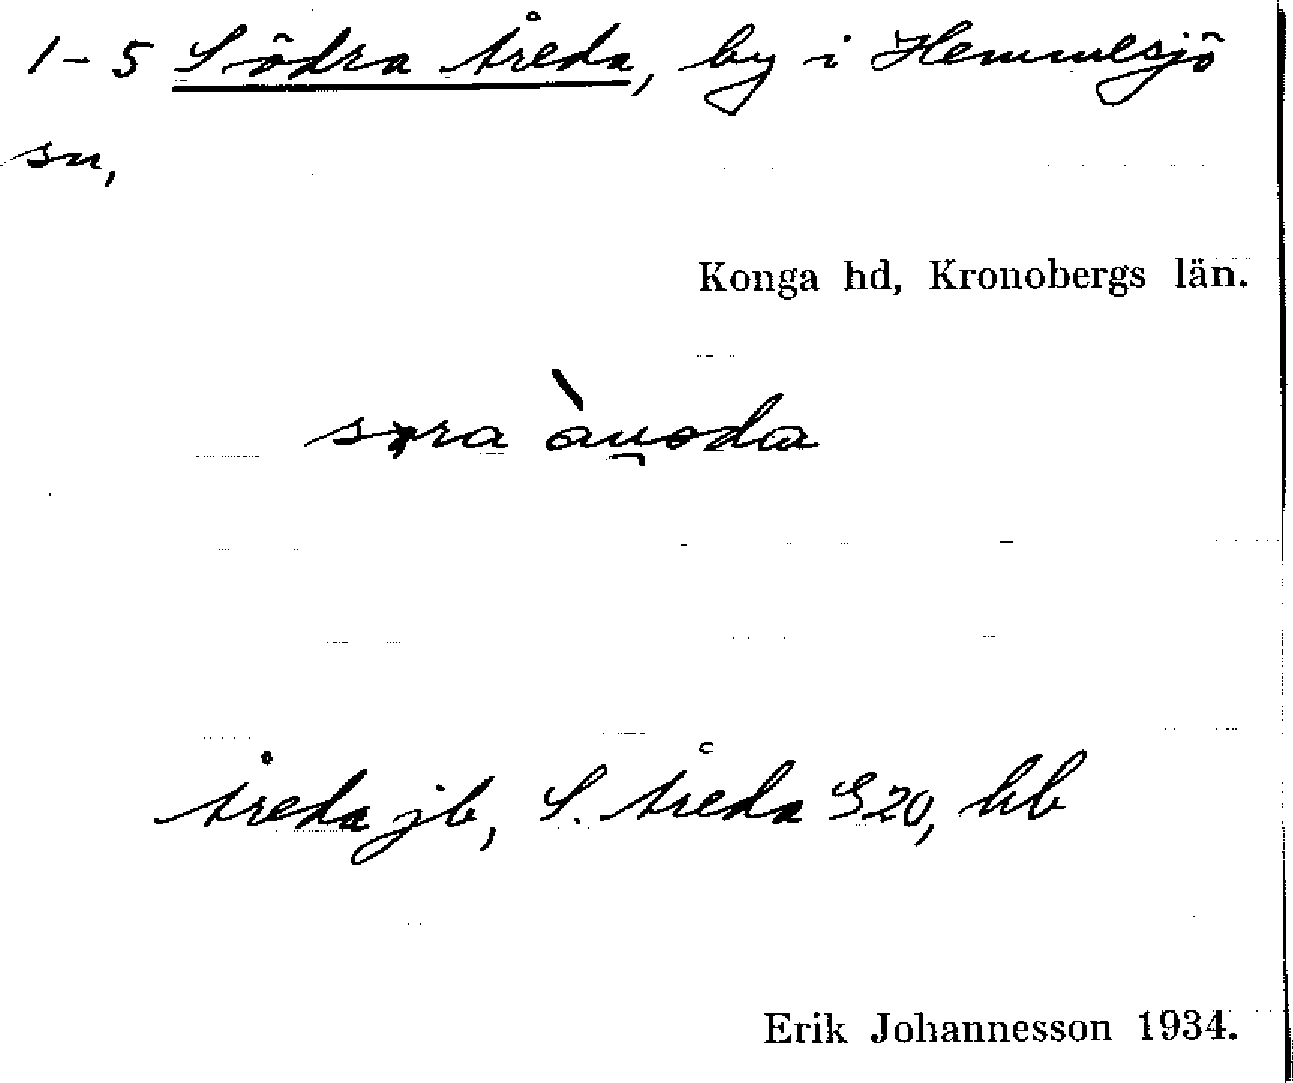 1-5 Södra Åreda, by i Hemmesjö
sn,
Konga hd, Kronobergs län.
Åreda jb, S. Åreda S20, hb
Erik Johannesson 1934.